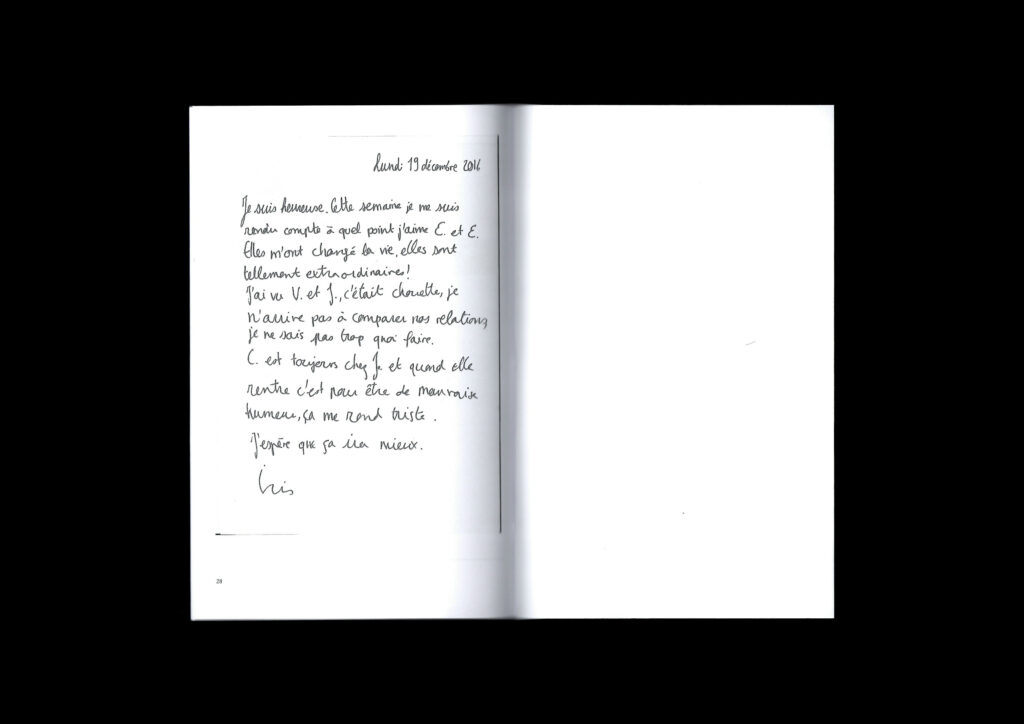 Lundi 19 décembre 2016
Je suis heureuse. Cette semaine je me suis
rendu compte à quel point j'aime C. et E.
Elles m'ont changé la vie, elles sont
tellement extraordinaires!
J'ai vu V. et J., c'était chouette, je
n'arrive pas à comparer nos relations,
je ne sais pas trop quoi faire.
C. est toujours chez J. et quand elle
rentre c'est pour être de mauvaise
humeur, ça me rend triste.
J'espère que ça ira mieux.
Iris
28